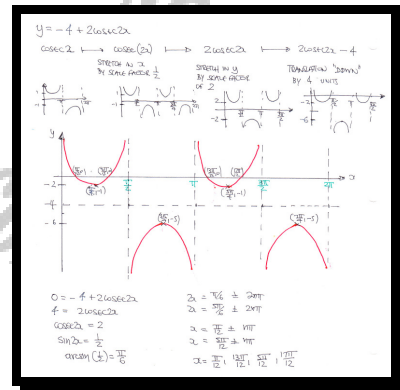 y = -4 + 2cosec2x
cosecx ↦ cosec(2x) ↦ 2cosec2x ↦ 2cosec2x - 4
STRETCH IN x
BY SCALE FACTOR 1/2
STRETCH IN y
BY SCALE FACTOR
OF 2
TRANSLATION "DOWN"
BY 4 UNITS
y
x
-2
-4
-6
π/2
π
3π/2
2π
(5π/4, -1)
(3π/4, -5)
(7π/4, -5)
0 = -4 + 2cosec2x
4 = 2cosec2x
cosec2x = 2
sin2x = 1/2
arcsin(1/2) = π/6
2x = π/6 ± 2nπ
2x = 5π/6 ± 2nπ
x = π/12 ± nπ
x = 5π/12 ± nπ
x = π/12, 13π/12, 5π/12, 17π/12